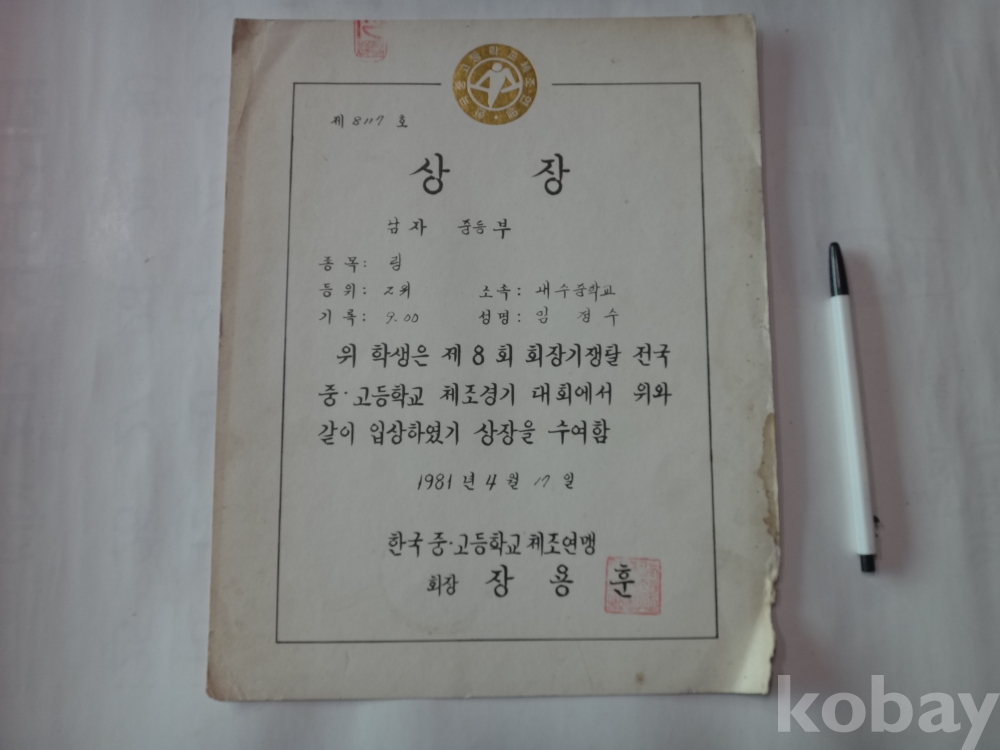 한국중고등학교체조연맹
제 8117 호
상 장
남자 중등부
종목: 링
등위: 2위 소속: 내수중학교
기록: 9.00 성명: 임 정 수
위 학생은 제 8 회 회장기쟁탈 전국
중·고등학교 체조경기 대회에서 위와
같이 입상하였기 상장을 수여함
1981 년 4 월 17 일
한국 중·고등학교 체조연맹
회장 장 용 훈
kobay